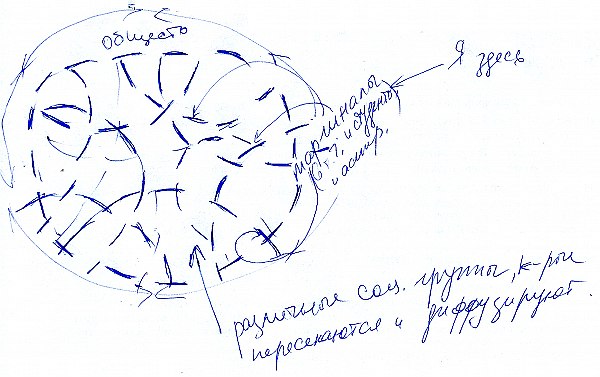 общество
Я здесь
маргиналы
(в т.ч. и студенты
и аспир.
различные соц. группы, к-рые
пересекаются и диффузируют.